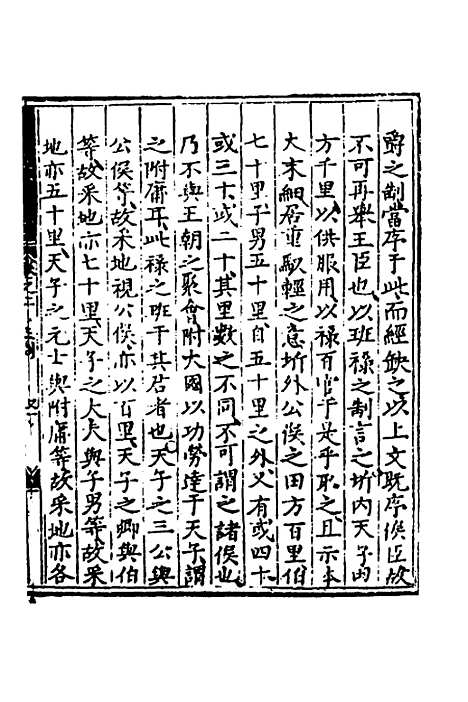 爵之制當序于此而經缺之以上文既序侯臣故
不可再舉王臣也以班祿之制言之圻内天子田
方千里以供服用以祿百官于是乎取之且示本
大末細居重馭輕之意圻外公侯之田方百里伯
七十里子男五十里自五十里之外又有或四十
或三十或二十其里數之不同不可謂之諸侯也
乃不與王朝之聚會附大國以功勞達于天子謂
之附庸耳此祿之班于其君者也天子之三公與
公侯等故采地視公侯亦以百里天子之卿與伯
等故采地亦七十里天子之大夫與子男等故采
地亦五十里天子之元士與附庸等故采地亦各